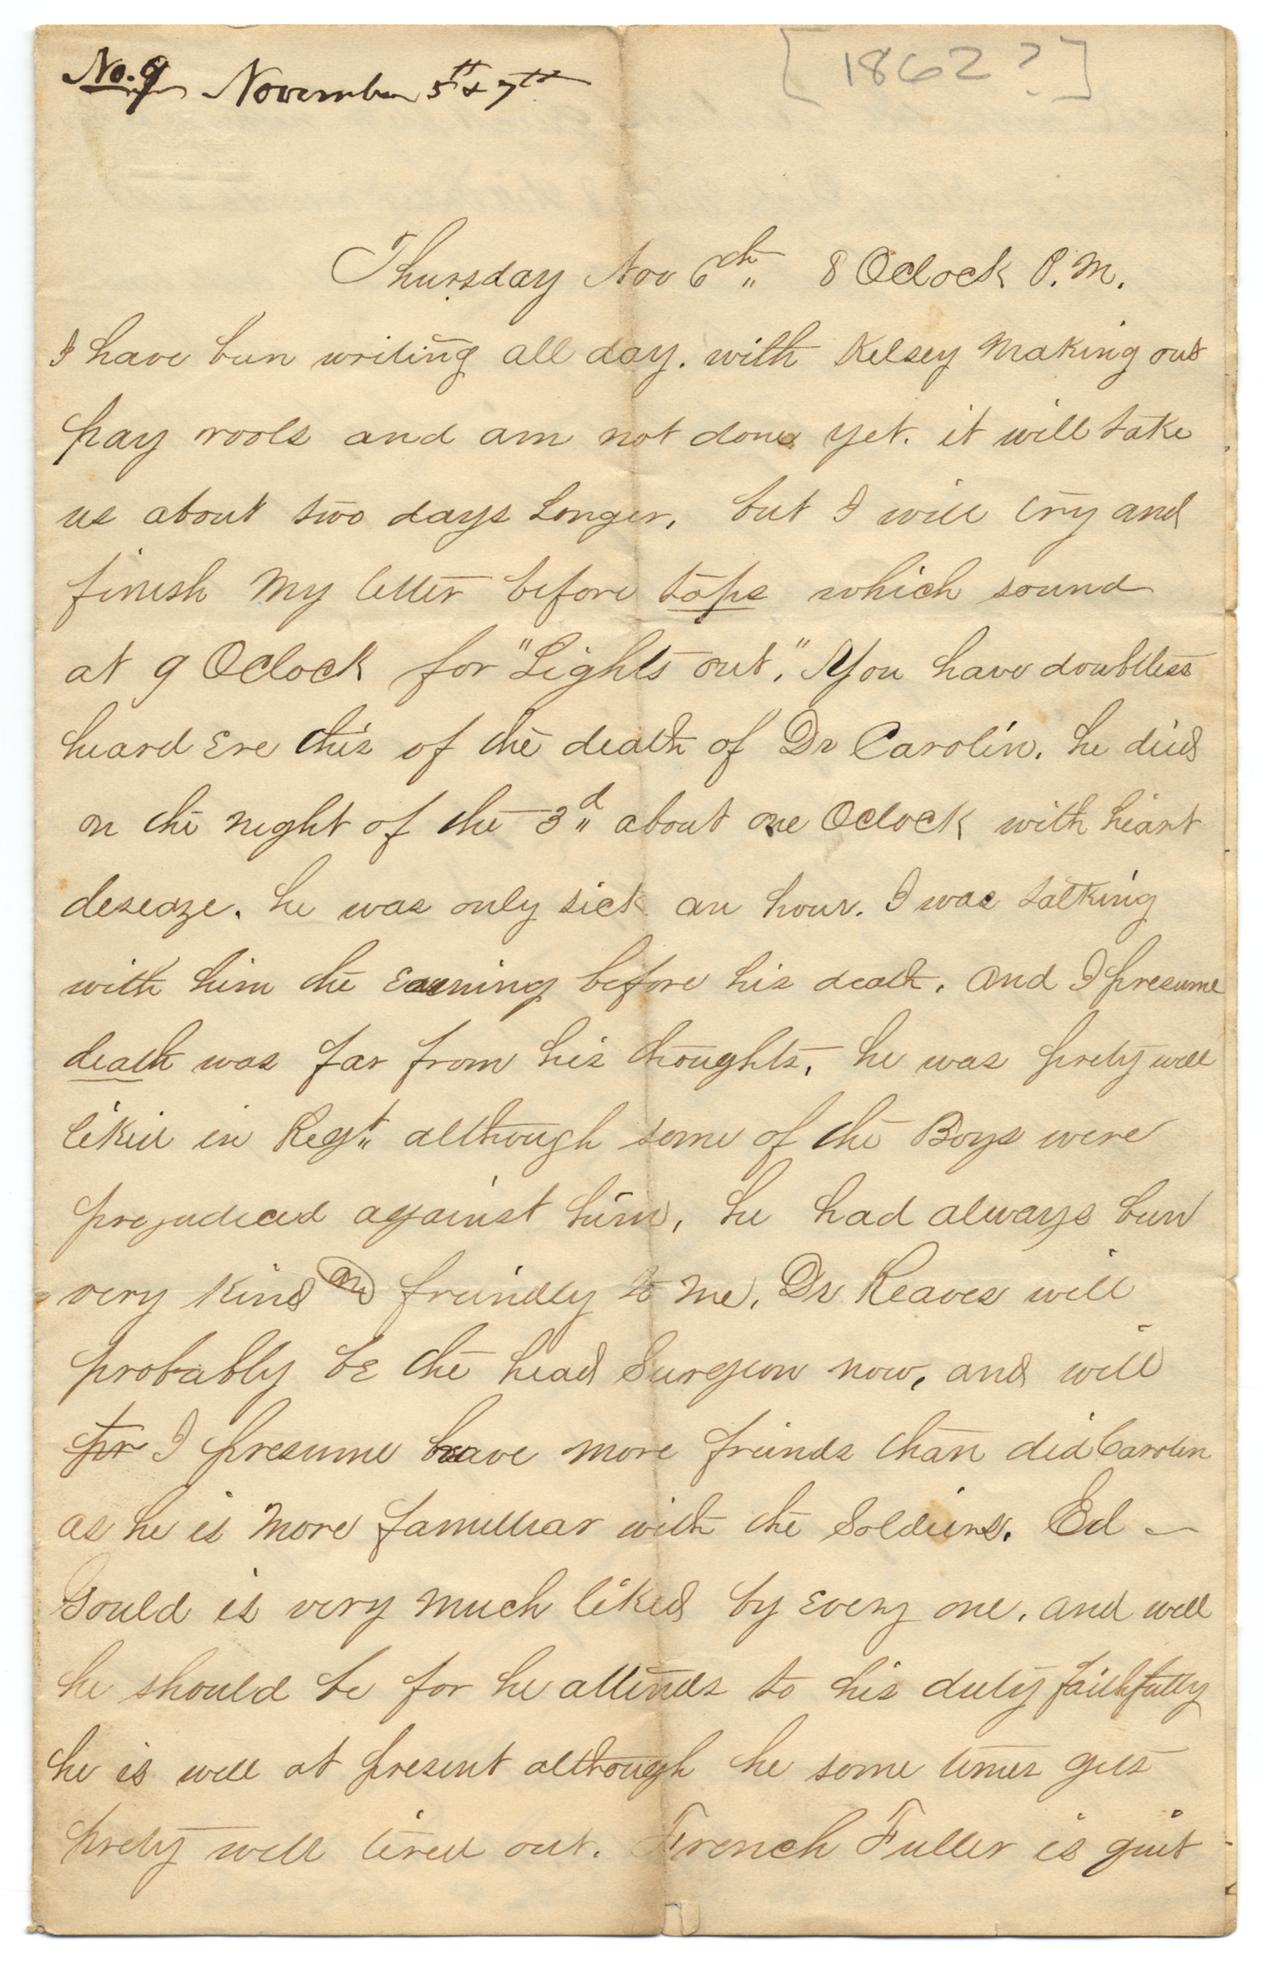 No. 9 November 5th & 7th
[1862?]
Thursday Nov 6th 8 Oclock P.M.
I have been writing all day. with Kelsey Making out
pay rools and am not done yet. it will take
us about two days Longer, but I will try and
finish My letter before taps which sound
at 9 Oclock for "Lights out." You have doubtless
heard Ere this of the death of Dr Carolin. he died
on the night of the 3d about one Oclock with heart
deseaze. he was only sick an hour. I was talking
with him the Evening before his death. and I presume
death was far from his thoughts, he was prety well
liked in Regt although some of the Boys were
prejudiced against him, he had always been
very Kind and freindly to me. Dr Reaves will
probably be the head Surgeon now, and will
pr I presume have more freinds than did Carolin
as he is More familliar with the Soldiers. Ed
Gould is very much liked by Every one. and well
he should be for he attends to his duty faithfully
he is well at present although he some times gets
prety well tired out. French Fuller is quit